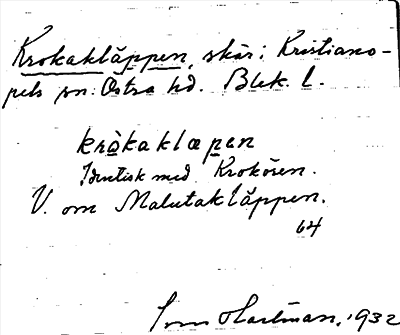 Krokakläppen, skär i Kristiano-
pels sn. Östra hd. Blek. l.
kròkaklæpen
Identisk med Krokören.
V. om Malutakläppen.
64
Hartman, 1932